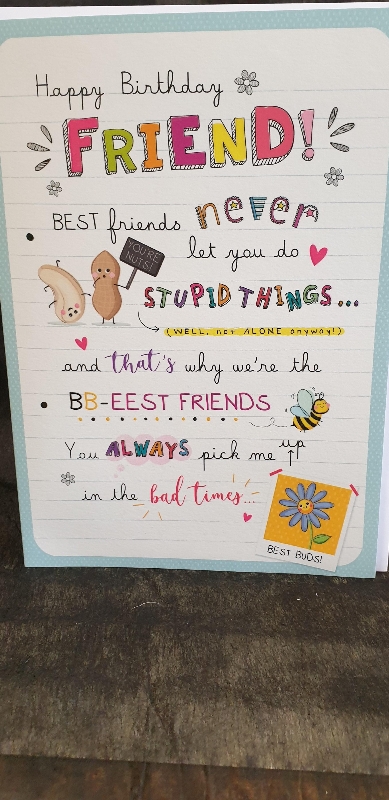 Happy Birthday
FRIEND!
BEST friends never
let you do
YOU'RE
NUTS!
STUPID THINGS...
(WELL, not ALONE anyway!)
and that's why we're the
BB-EEST FRIENDS
You ALWAYS pick me up
in the bad times...
BEST BUDS!